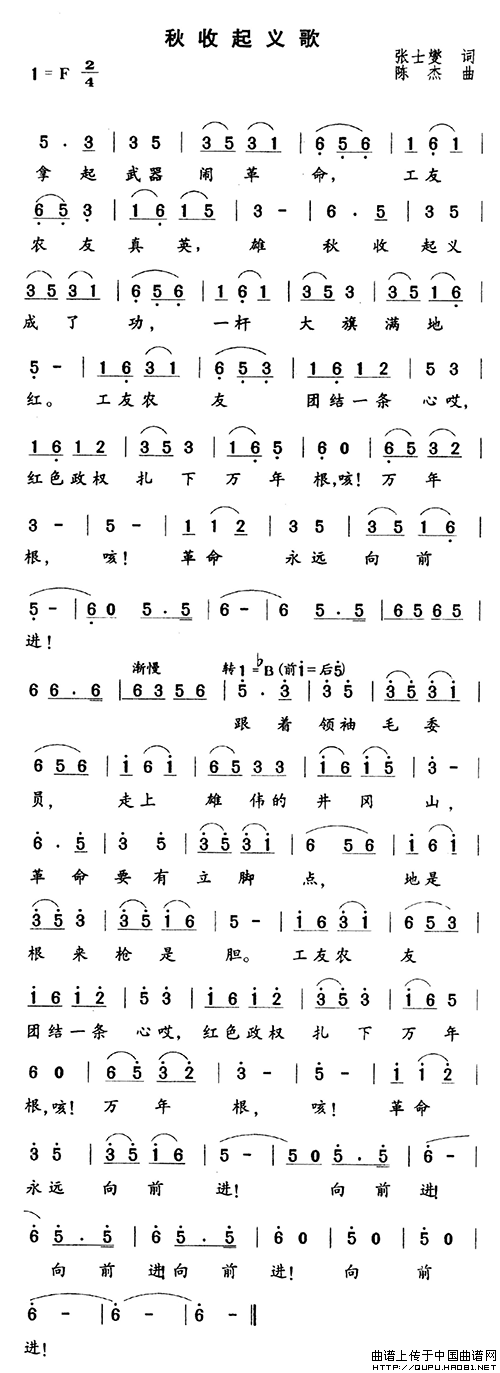 秋收起义歌
张士燮 词
1=F 2/4
陈杰 曲
5 . 3 | 3 5 | 3 5 3 1 | 6 5 6 | 1 6 1 |
拿起 武器 闹革 命， 工友
6 5 3 | 1 6 1 5 | 3 - | 6 . 5 | 3 5 |
农友 真英， 雄 秋收 起义
3 5 3 1 | 6 5 6 | 1 6 1 | 3 5 3 | 3 5 1 6 |
成了 功， 一杆 大旗 满地
5 - | 1 6 3 1 | 6 5 3 | 1 6 1 2 | 5 3 |
红。 工友农 友 团结一条 心哎，
1 6 1 2 | 3 5 3 | 1 6 5 | 6 0 | 6 5 3 2 |
红色政权 扎下 万年 根，咳！ 万年
3 - | 5 - | 1 1 2 | 3 5 | 3 5 1 6 |
根， 咳！ 革命 永远 向前
5 - | 6 0 5 . 5 | 6 - | 6 5 . 5 | 6 5 6 5 |
进！
渐慢 转1=♭B(前i=后5)
6 6 . 6 | 6 3 5 6 | 5 . 3 | 3 5 | 3 5 3 1 |
跟着 领袖 毛委
6 5 6 | 1 6 1 | 6 5 3 3 | 1 6 1 5 | 3 - |
员， 走上 雄伟的 井冈 山，
6 . 5 | 3 5 | 3 5 3 1 | 6 5 6 | 1 6 1 |
革命 要有 立脚 点， 地是
3 5 3 | 3 5 1 6 | 5 - | 1 6 3 1 | 6 5 3 |
根来 枪是 胆。 工友农 友
1 6 1 2 | 5 3 | 1 6 1 2 | 3 5 3 | 1 6 5 |
团结一条 心哎， 红色政权 扎下 万年
6 0 | 6 5 3 2 | 3 - | 5 - | 1 1 2 |
根，咳！ 万年 根， 咳！ 革命
3 5 | 3 5 1 6 | 5 - | 5 0 5 . 5 | 6 - |
永远 向前 进！ 向前 进！
6 5 . 5 | 6 5 . 5 | 6 0 | 5 0 | 5 0 |
向前 进！向前 进！ 向前
6 - | 6 - | 6 - ‖
进！
曲谱上传于中国曲谱网
©WWW.QUPU.HAO81.NET